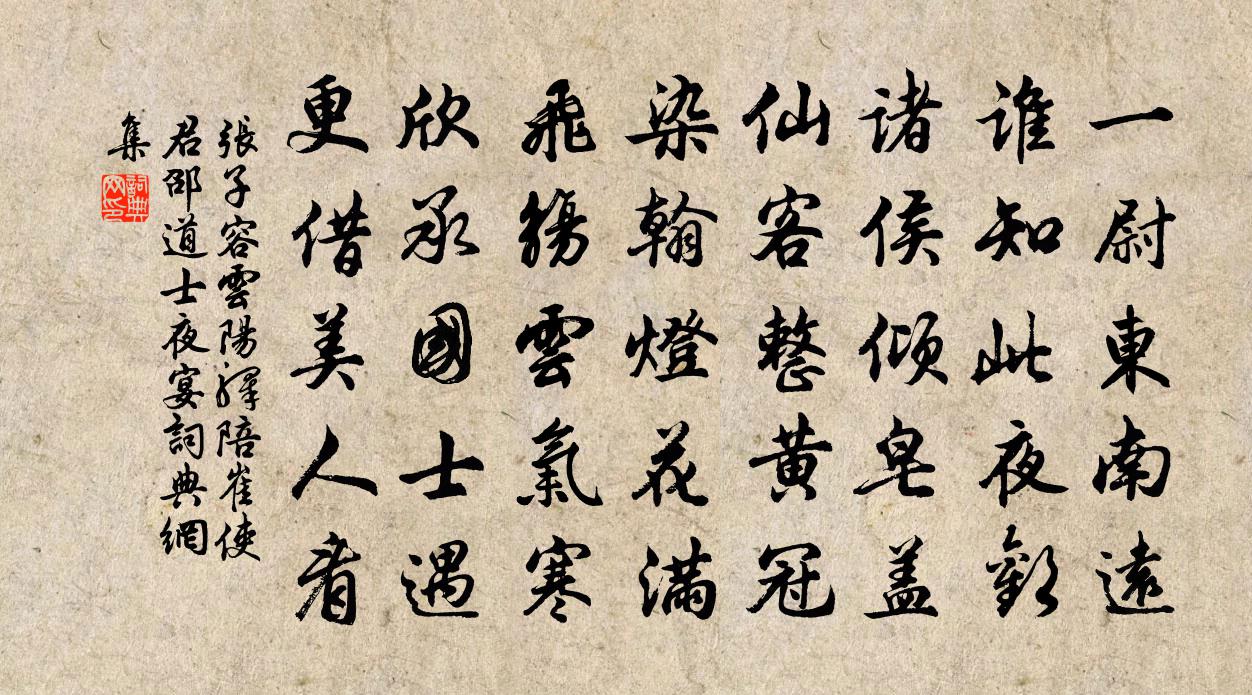 一尉東南遠
誰知此夜歡
諸侯傾皂蓋
仙客整黃冠
染翰燈花滿
飛觴雲氣寒
欣承國士遇
更借美人看
張子容雲陽驛陪崔使
君邵道士夜宴詞典網
集
詞典
网印